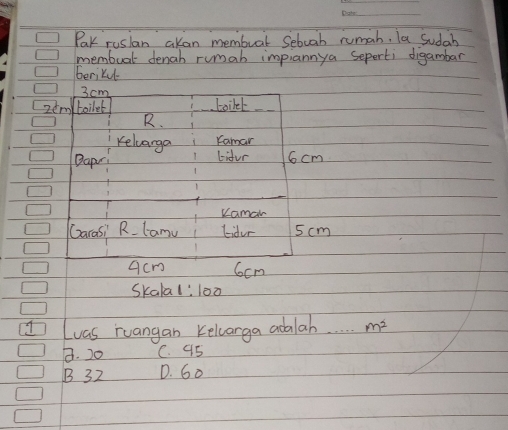 Pak ruslan akan membuat sebuah rumah. Ia sudah
membuat denah rumah impiannya seperti digambar
berikut
3cm
2cm toilet toilet
R.
Keluarga Kamar
Dapur tidur 6cm
Kamar
Garasi R-tamu tidur 5cm
4cm 6cm
Skala 1:100
1 Luas ruangan keluarga adalah ..... m²
a. 20 C. 45
B 32 D. 60